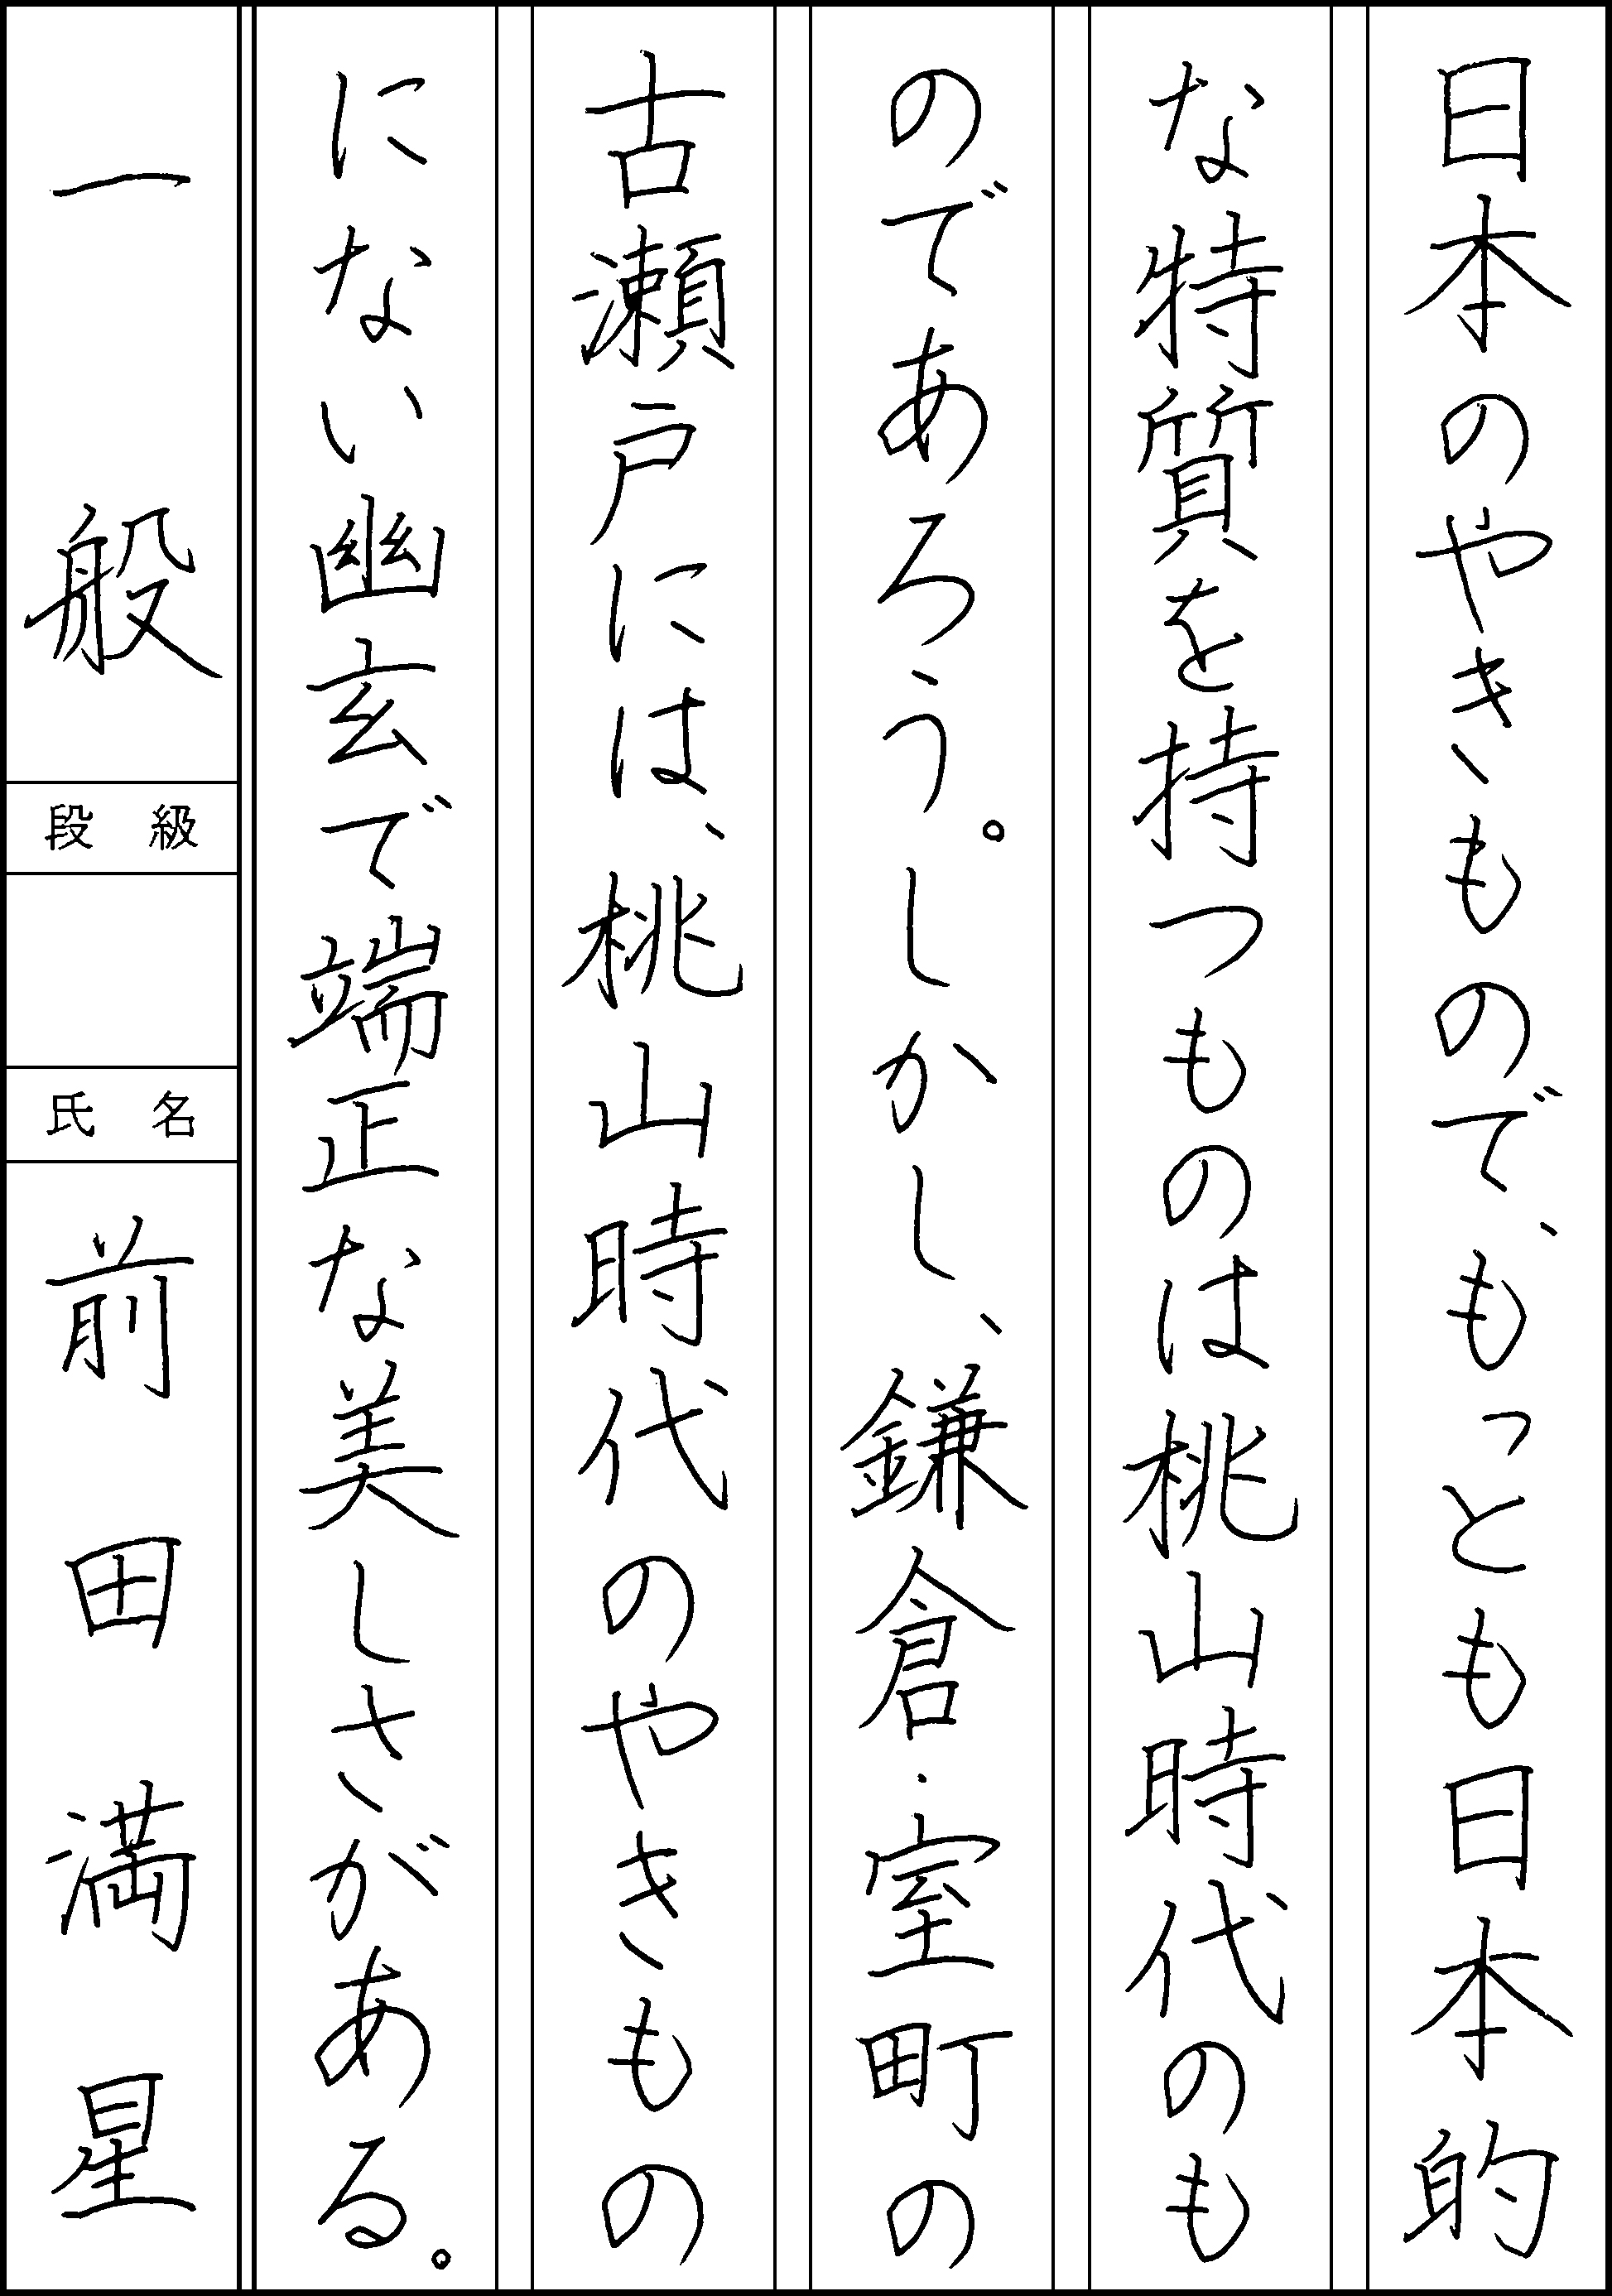 日本のやきもので、もっとも日本的
な特質を持つものは桃山時代のも
のであろう。しかし、鎌倉・室町の
古瀬戸には、桃山時代のやきもの
にない幽玄で端正な美しさがある。
一般
段級
氏名
前田満星